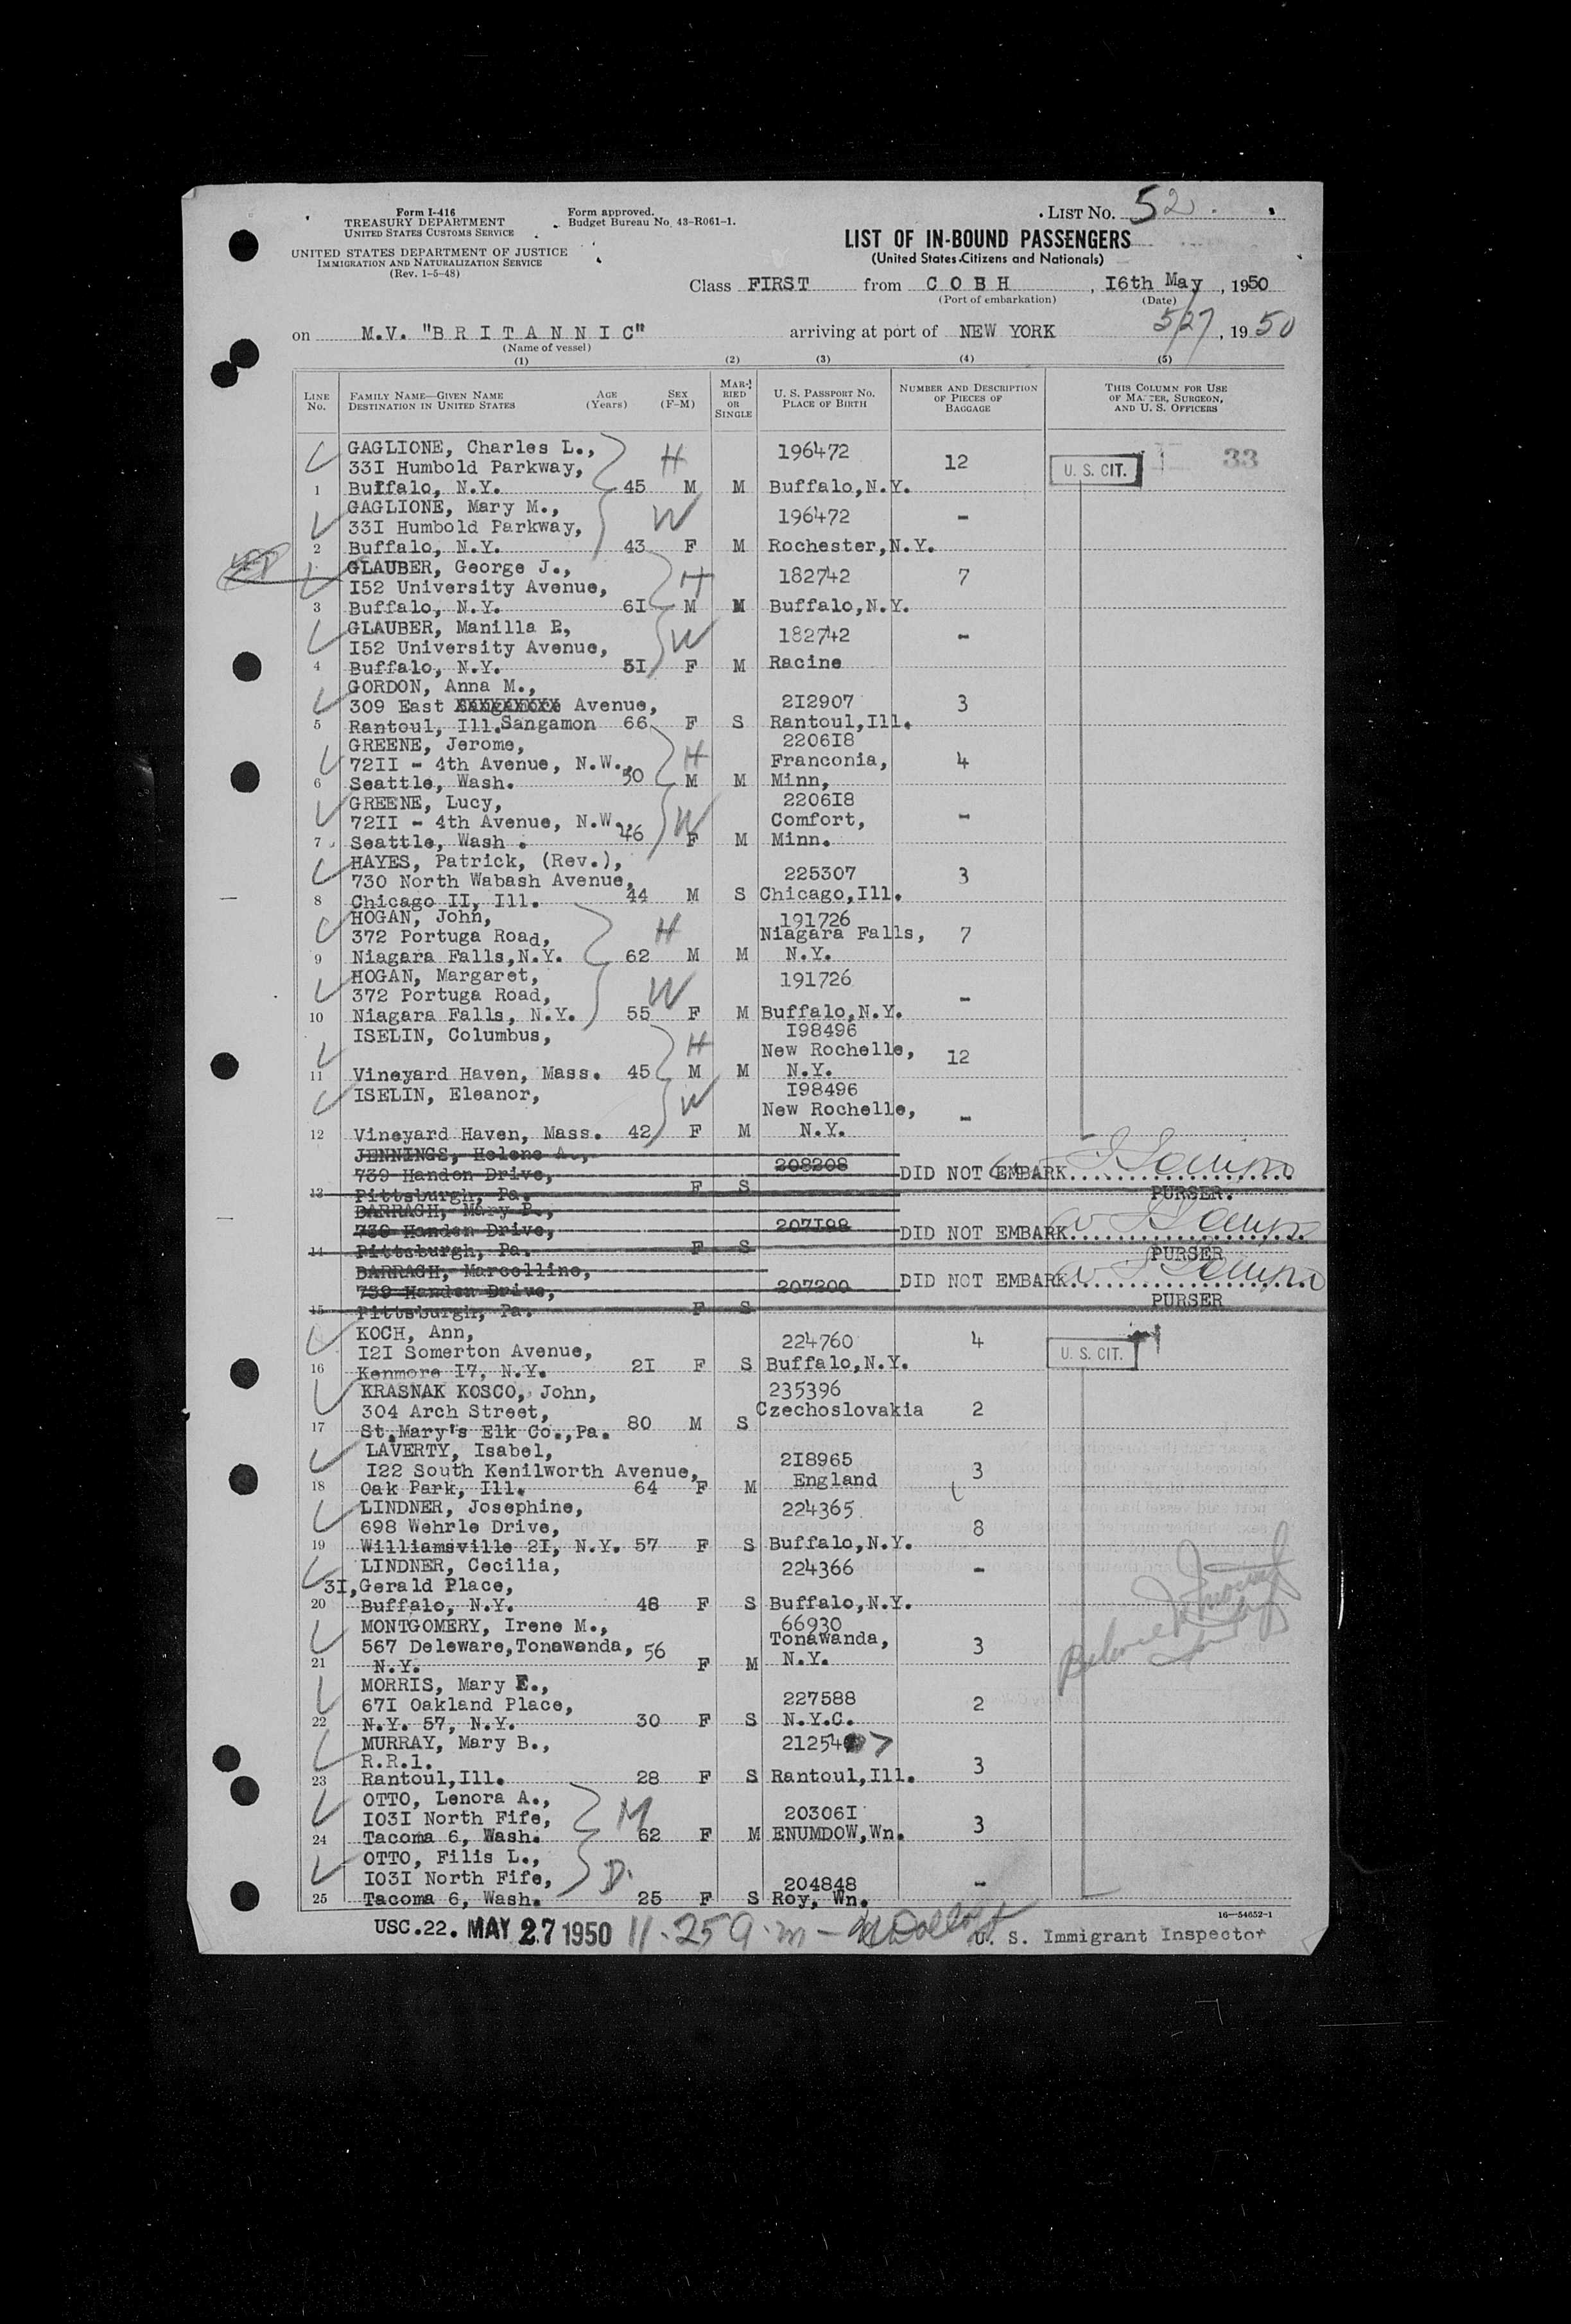 Form I-416
TREASURY DEPARTMENT
UNITED STATES CUSTOMS SERVICE
Form approved.
Budget Bureau No. 43-R061-1.
LIST No. 52.
UNITED STATES DEPARTMENT OF JUSTICE
IMMIGRATION AND NATURALIZATION SERVICE
(Rev. 1-5-48)
LIST OF IN-BOUND PASSENGERS
(United States Citizens and Nationals)
Class FIRST from COBH, I6th May, 1950
(Port of embarkation) (Date)
on M.V. "BRITANNIC" arriving at port of NEW YORK 5/27, 1950
(Name of vessel)
(1) (2) (3) (4) (5)
LINE No. FAMILY NAME—GIVEN NAME DESTINATION IN UNITED STATES AGE (Years) SEX (F-M) MARRIED OR SINGLE U. S. PASSPORT No. PLACE OF BIRTH NUMBER AND DESCRIPTION OF PIECES OF BAGGAGE THIS COLUMN FOR USE OF MASTER, SURGEON, AND U. S. OFFICERS
GAGLIONE, Charles L., 196472
33I Humbold Parkway, H 12 U. S. CIT. 33
1 Buffalo, N.Y. 45 M M Buffalo,N.Y.
GAGLIONE, Mary M.,
33I Humbold Parkway, W 196472 -
2 Buffalo, N.Y. 43 F M Rochester,N.Y.
GLAUBER, George J.,
I52 University Avenue, H 182742 7
3 Buffalo, N.Y. 6I M M Buffalo,N.Y.
GLAUBER, Manilla P.,
I52 University Avenue, W 182742 -
4 Buffalo, N.Y. 5I F M Racine
GORDON, Anna M.,
309 East Avenue, 2I2907 3
5 Rantoul, Ill. Sangamon 66 F S Rantoul,Ill.
GREENE, Jerome, 2206I8
72II - 4th Avenue, N.W., H Franconia, 4
6 Seattle, Wash. 50 M M Minn,
GREENE, Lucy, 2206I8
72II - 4th Avenue, N.W., W Comfort, -
7 Seattle, Wash . 46 F M Minn.
HAYES, Patrick, (Rev.),
730 North Wabash Avenue, 225307 3
8 Chicago II, Ill. 44 M S Chicago,Ill.
HOGAN, John, 191726
372 Portuga Road, H Niagara Falls, 7
9 Niagara Falls,N.Y. 62 M M N.Y.
HOGAN, Margaret, 191726
372 Portuga Road, W -
10 Niagara Falls, N.Y. 55 F M Buffalo,N.Y.
ISELIN, Columbus, I98496
H New Rochelle, 12
11 Vineyard Haven, Mass. 45 M M N.Y.
ISELIN, Eleanor, I98496
W New Rochelle, -
12 Vineyard Haven, Mass. 42 F M N.Y.
JENNINGS, Helene A.,
739 Handen Drive, 208208 DID NOT EMBARK
13 Pittsburgh, Pa. F S PURSER.
DARRAGH, Mary P.,
739 Handen Drive, 207199 DID NOT EMBARK
14 Pittsburgh, Pa. F S PURSER
DARRAGH, Marcelline,
739 Handen Drive, 207200 DID NOT EMBARK
15 Pittsburgh, Pa. F S PURSER
KOCH, Ann,
I2I Somerton Avenue, 224760 4 U. S. CIT.
16 Kenmore I7, N.Y. 2I F S Buffalo,N.Y.
KRASNAK KOSCO, John, 235396
304 Arch Street, Czechoslovakia 2
17 St.Mary's Elk Co.,Pa. 80 M S
LAVERTY, Isabel, 2I8965
I22 South Kenilworth Avenue, England 3
18 Oak Park, Ill. 64 F M
LINDNER, Josephine, 224365
698 Wehrle Drive, 8
19 Williamsville 2I, N.Y. 57 F S Buffalo,N.Y.
LINDNER, Cecilia, 224366 -
3I,Gerald Place,
20 Buffalo, N.Y. 48 F S Buffalo,N.Y.
MONTGOMERY, Irene M., 66930
567 Deleware,Tonawanda, 56 Tonawanda, 3
21 N.Y. F M N.Y.
MORRIS, Mary E.,
67I Oakland Place, 227588 2
22 N.Y. 57, N.Y. 30 F S N.Y.C.
MURRAY, Mary B., 21254 7
R.R.1. 3
23 Rantoul,Ill. 28 F S Rantoul,Ill.
OTTO, Lenora A.,
I03I North Fife, M 20306I 3
24 Tacoma 6, Wash. 62 F M ENUMDOW,Wn.
OTTO, Filis L.,
I03I North Fife, D. 204848 -
25 Tacoma 6, Wash. 25 F S Roy, Wn.
16—54652-1
USC.22. MAY 27 1950 11.25 a.m - U. S. Immigrant Inspector